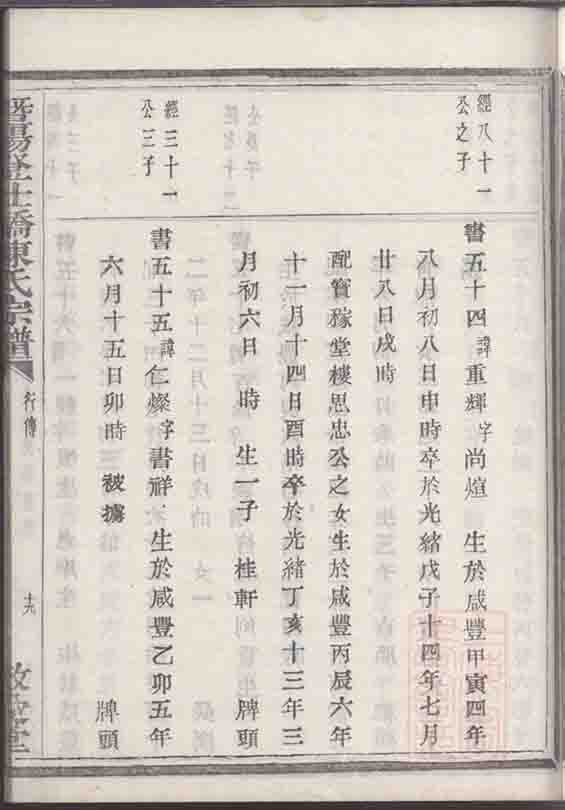 經八十一
公之子
書五十四諱重輝字尚煊 生於咸豐甲寅四年
八月初八日申時卒於光緒戊子十四年七月
廿八日戌時
配寶稼堂樓思忠公之女生於咸豐丙辰六年
十一月十四日酉時卒於光緒丁亥十三年三
月初六日 時 生一子 桂軒 牌頭
經三十一
公三子
書五十五諱仁燦字書祥 生於咸豐乙卯五年
六月十五日卯時 被擄 牌頭
暨陽登仕橋陳氏宗譜
行傳